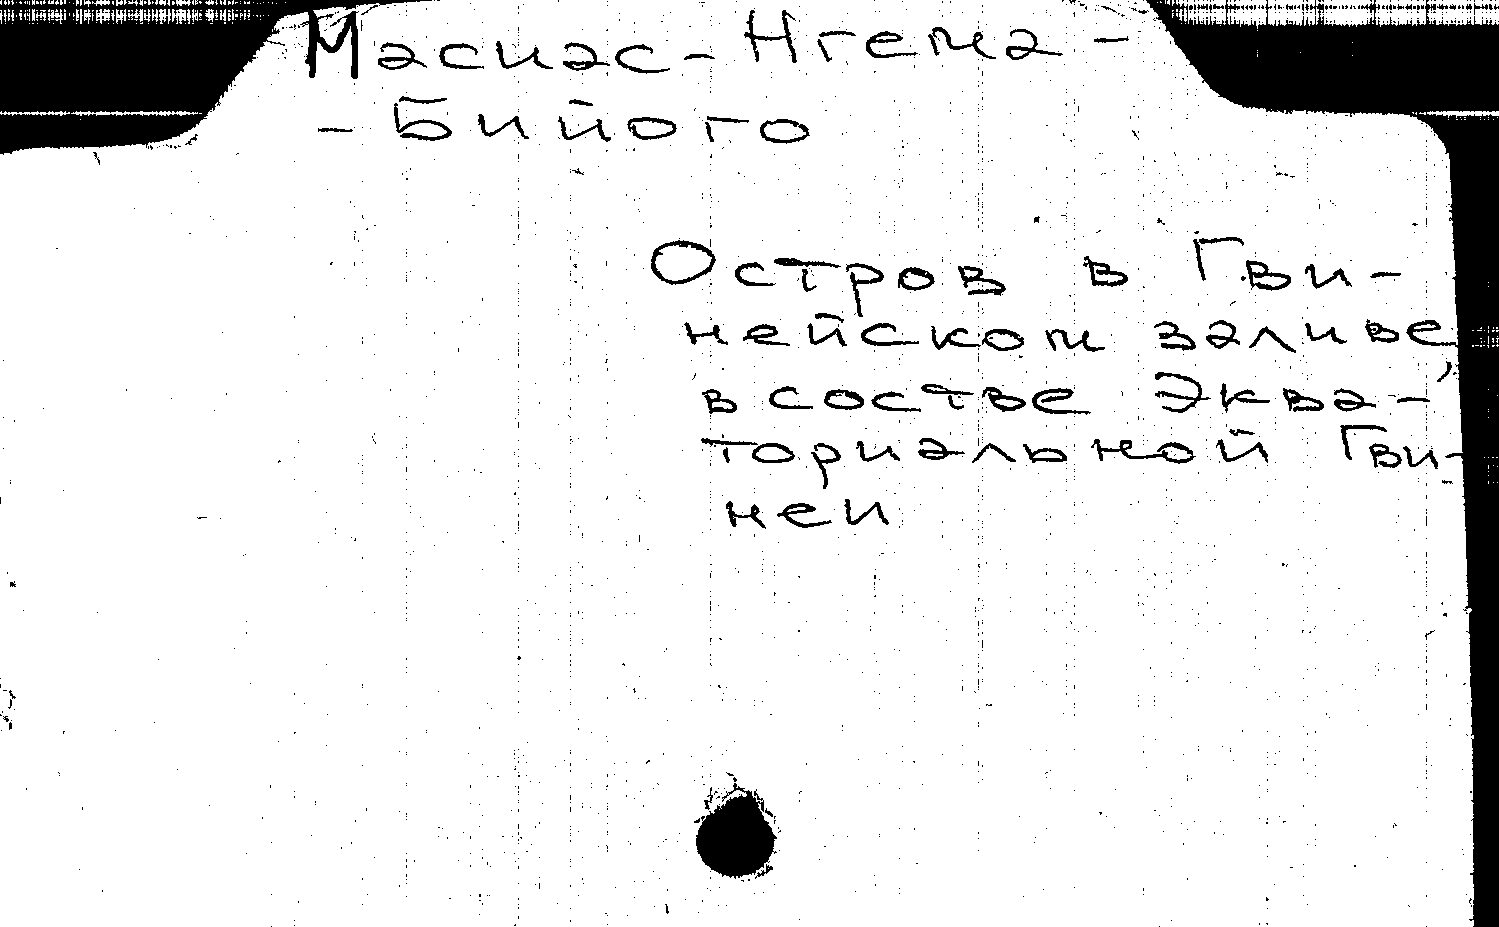 Масиас-Нгема-
-Бийого
Остров в Гви-
нейском заливе,
в состве Эква-
ториальной Гви-
неи